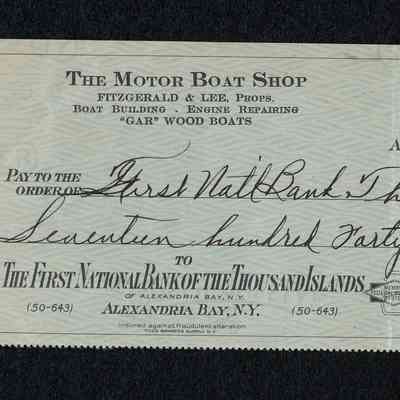 THE MOTOR BOAT SHOP
FITZGERALD & LEE, PROPS.
BOAT BUILDING - ENGINE REPAIRING
"GAR" WOOD BOATS
A
PAY TO THE
ORDER OF First Nat'l Bank, Th
Seventeen hundred Forty
TO
THE FIRST NATIONAL BANK OF THE THOUSAND ISLANDS
OF ALEXANDRIA BAY, N.Y.
(50-643) ALEXANDRIA BAY, N.Y. (50-643)
Insured against fraudulent alteration